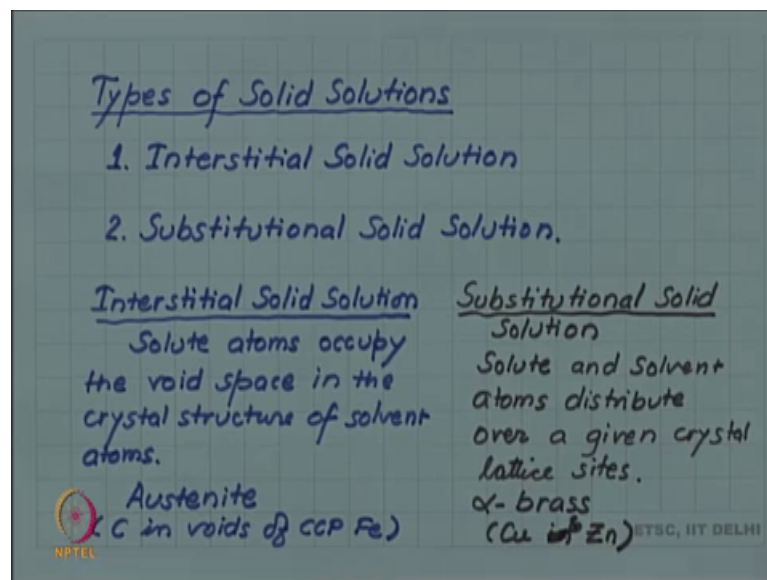 Types of Solid Solutions
1. Interstitial Solid Solution
2. Substitutional Solid Solution.
Interstitial Solid Solution
Solute atoms occupy
the void space in the
crystal structure of solvent
atoms.
Austenite
(C in voids of CCP Fe)
Substitutional Solid
Solution
Solute and Solvent
atoms distribute
over a given crystal
lattice sites.
α-brass
(Cu Zn)
NPTEL
ETSC, IIT DELHI